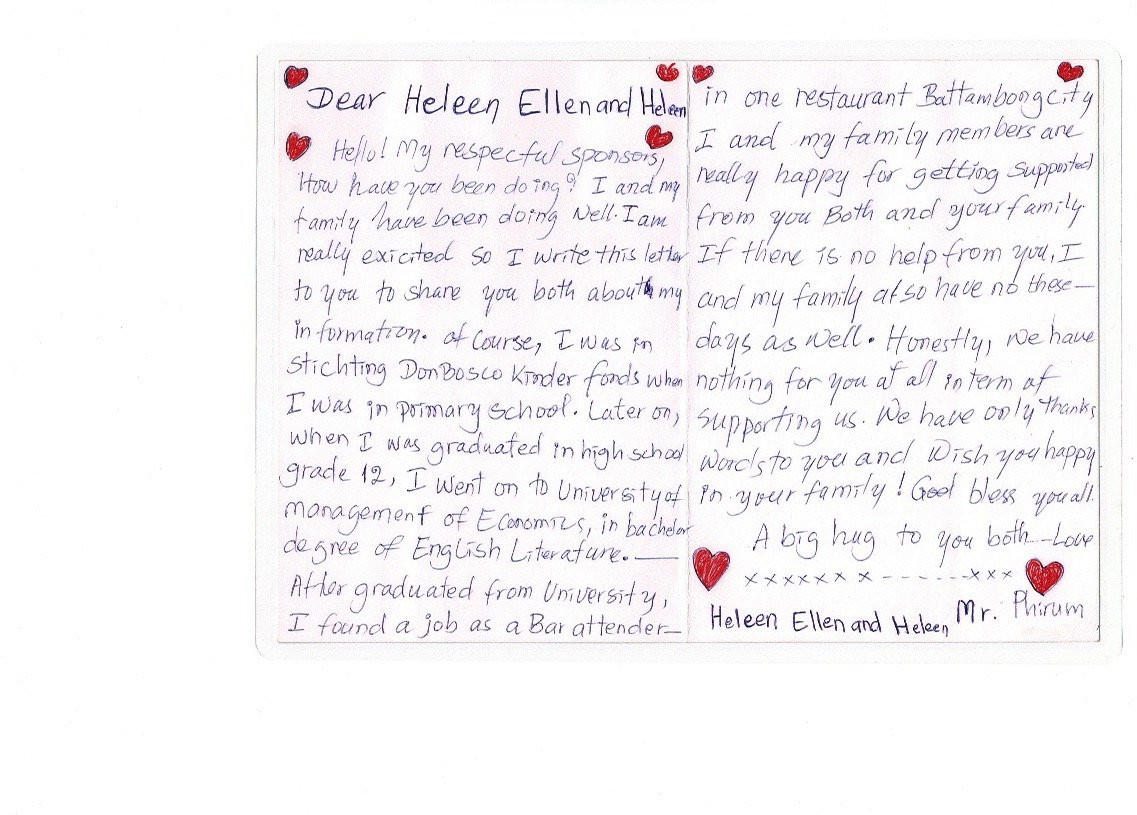 Dear Heleen Ellen and Heleen
Hello! My respecful sponsors,
How have you been doing? I and my
family have been doing Well. I am
really exicited so I write this letter
to you to share you both about my
information. of Course, I was in
Stichting DonBosco Kinder fonds when
I was in primary school. Later on,
when I was graduated in high school
grade 12, I went on to University of
management of Economics, in bachelor
degree of English Literature. —
After graduated from University,
I found a job as a Bar attender—
in one restaurant Battambong city
I and my family members are
really happy for getting supported
from you Both and your family.
If there is no help from you, I
and my family also have no these—
days as well. Honestly, we have
nothing for you at all in term of
supporting us. We have only thanks
words to you and wish you happy
in your family! God bless you all.
A big hug to you both—Love
xxxxxxx------xxx
Heleen Ellen and Heleen Mr. Phirum